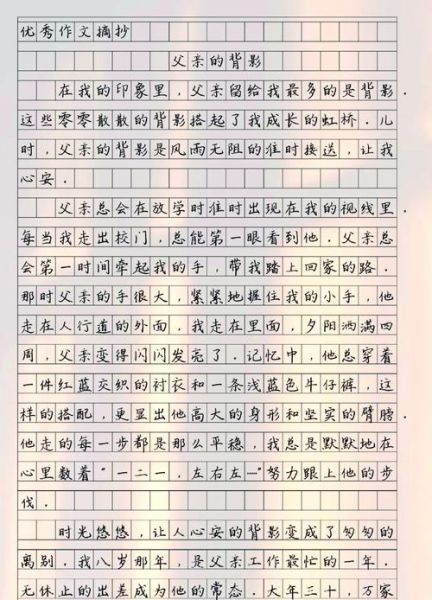 优秀作文摘抄
父亲的背影
在我的印象里，父亲留给我最多的是背影．
这些零零散散的背影搭起了我成长的虹桥．儿
时，父亲的背影是风雨无阻的准时接送，让我
心安．
父亲总会在放学时准时出现在我的视线里．
每当我走出校门，总能第一眼看到他．父亲总
会第一时间牵起我的手，带我踏上回家的路．
那时父亲的手很大，紧紧地握住我的小手，他
走在人行道的外面，我走在里面，夕阳洒满四
周，父亲变得闪闪发亮了．记忆中，他总穿着
一件红蓝交织的衬衣和一条浅蓝色牛仔裤，这
样的搭配，更显出他高大的身形和坚实的臂膀．
他走的每一步都是那么平稳，我总是默默地在
心里数着“一二一，左右左—”努力跟上他的步
伐．
时光悠悠，让人心安的背影变成了匆匆的
离别．我八岁那年，是父亲工作最忙的一年．
无休止的出差成为他的常态．大年三十，万家